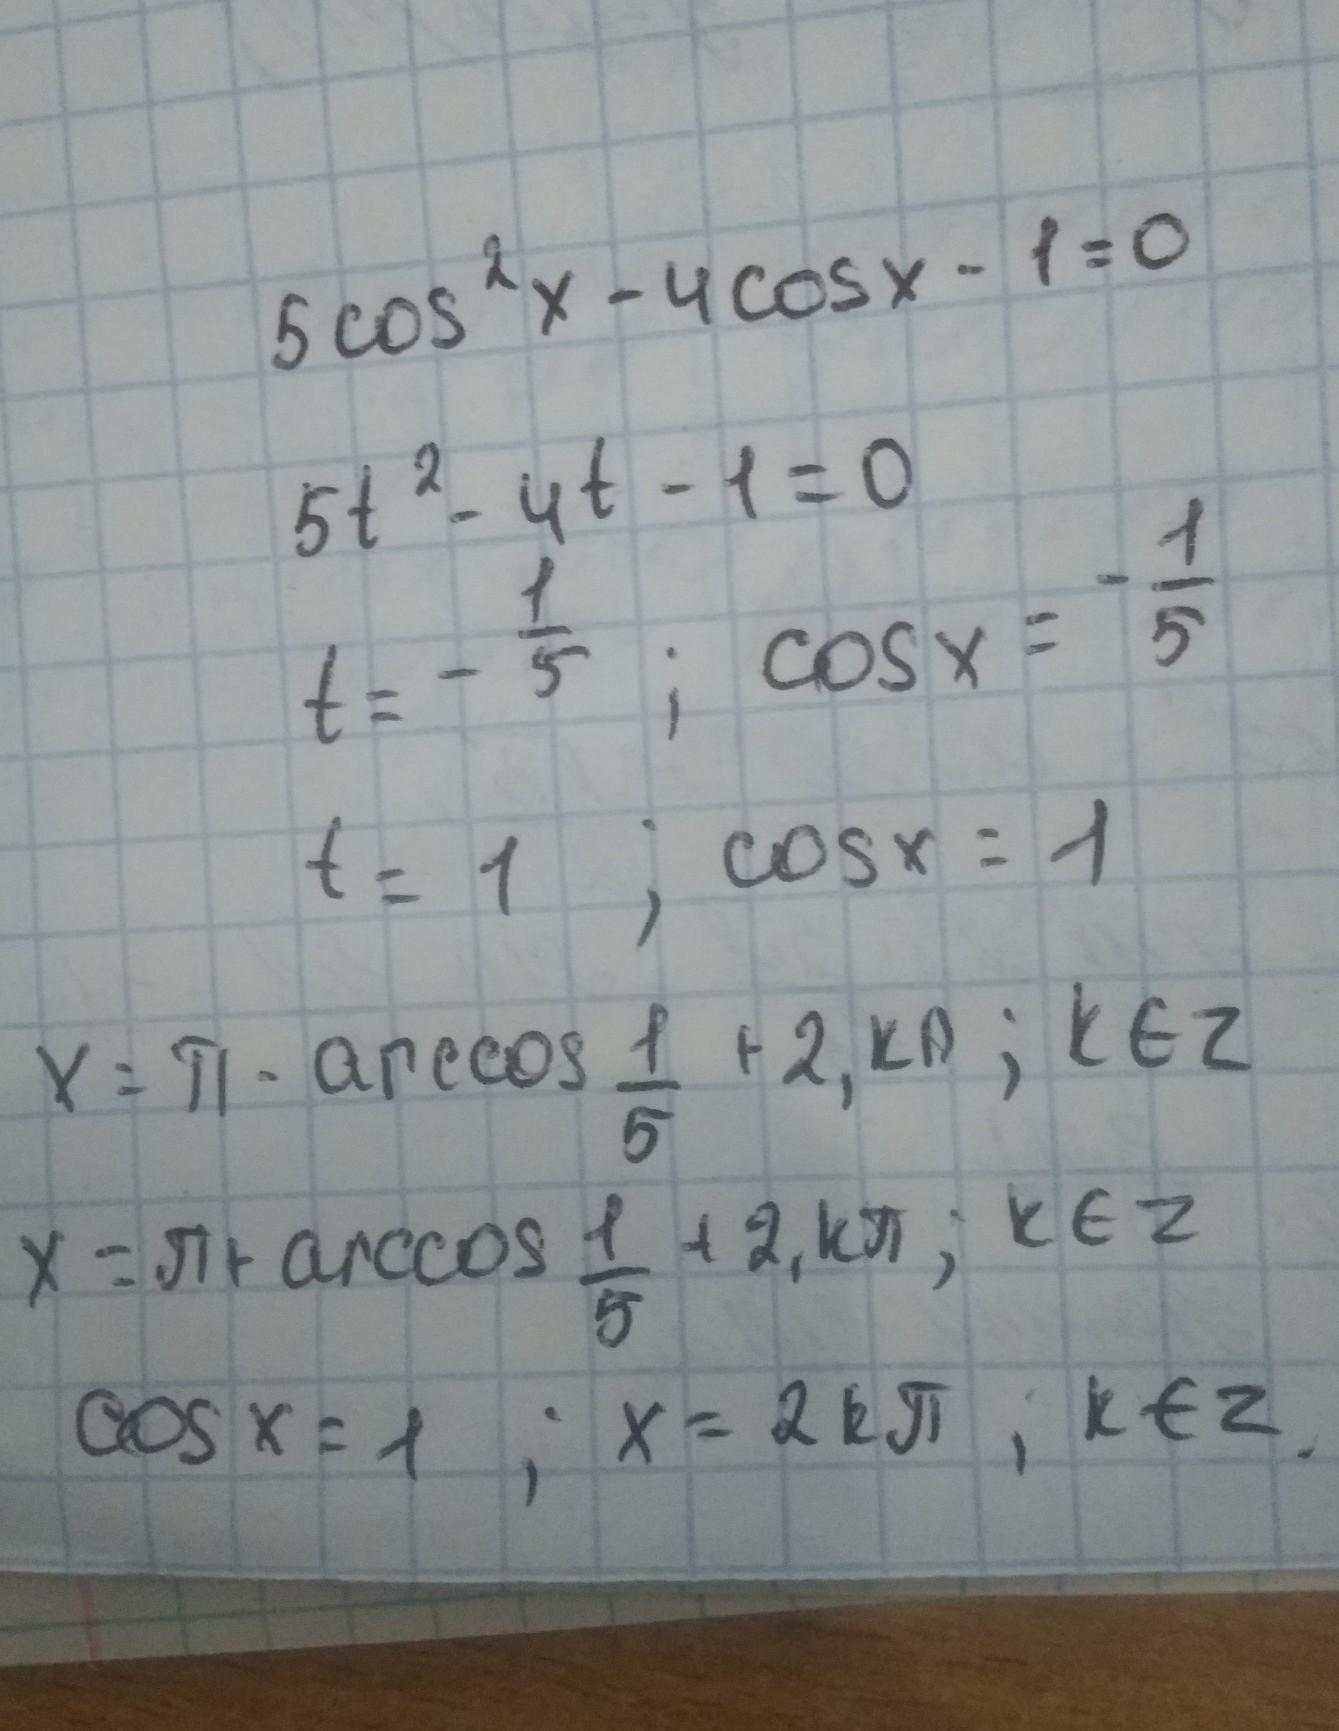 5cos²x - 4cosx - 1 = 0
5t² - 4t - 1 = 0
t = - 1/5 ; cosx = - 1/5
t = 1 ; cosx = 1
x = π - arccos 1/5 + 2,kπ ; k ∈ Z
x = π + arccos 1/5 + 2,kπ ; k ∈ Z
cosx = 1 ; x = 2kπ ; k ∈ Z.